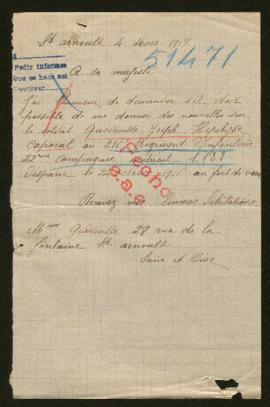 St arnoult 4 Mars 1917
51471
Pedir informes
Que se haga así
Devolver
A sa majesté
J'ai l'honneur de demander s'il était
possible de me donner des nouvelles sur
le soldat Quedeville Joseph Hipolyte
Caporal au Regiment d'infanterie
22ème Compagnie
Disparu le au fort de
Fecho
Recevez mes Sincères Salutations
Mme Quedeville 28 rue de la
fontaine St arnoult
Seine et Oise